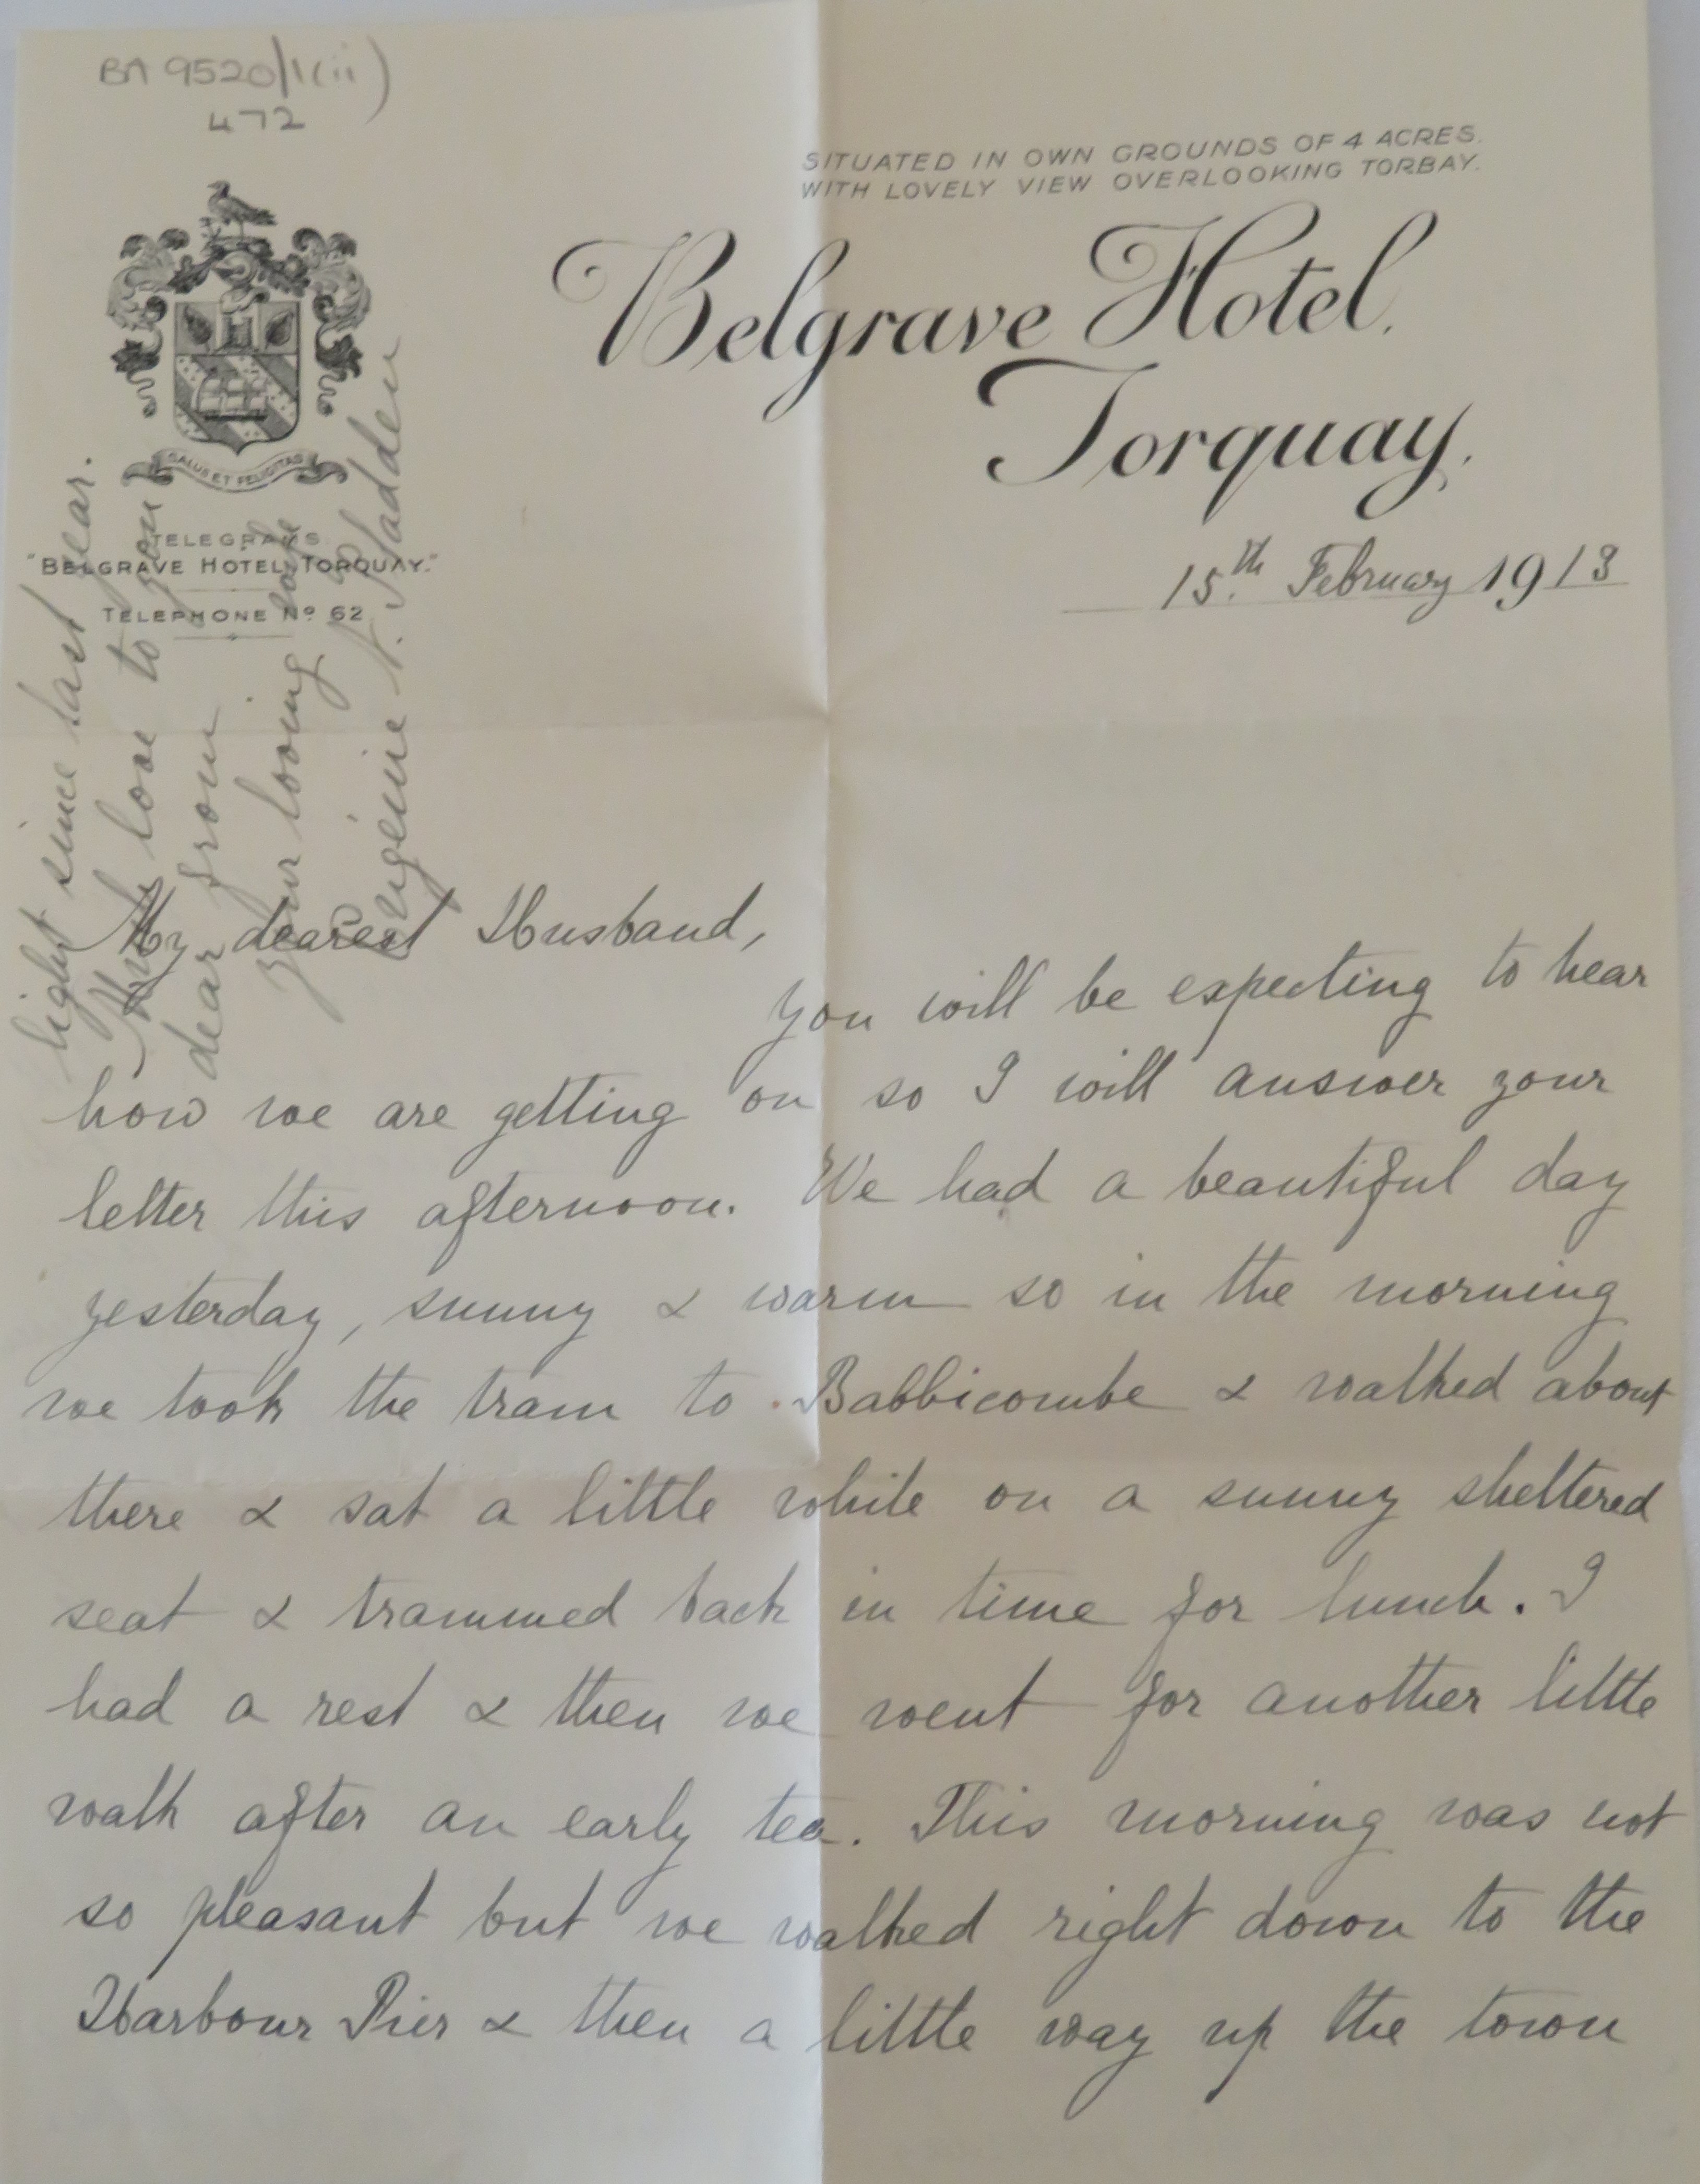 BA 9520/1(ii)
472
SITUATED IN OWN GROUNDS OF 4 ACRES.
WITH LOVELY VIEW OVERLOOKING TORBAY.
Belgrave Hotel,
Torquay,
SALUS ET FELICITAS
TELEGRAMS
"BELGRAVE HOTEL, TORQUAY."
TELEPHONE No 62
15th. February 1913
My dearest Husband,
you will be expecting to hear
how we are getting on so I will answer your
letter this afternoon. We had a beautiful day
yesterday, sunny & warm so in the morning
we took the tram to Babbicombe & walked about
there & sat a little while on a sunny sheltered
seat & trammed back in time for lunch. I
had a rest & then we went for another little
walk after an early tea. This morning was not
so pleasant but we walked right down to the
Harbour Pier & then a little way up the town
light since last year.
Much love to you
dear from
your loving wife
Eugénie N.